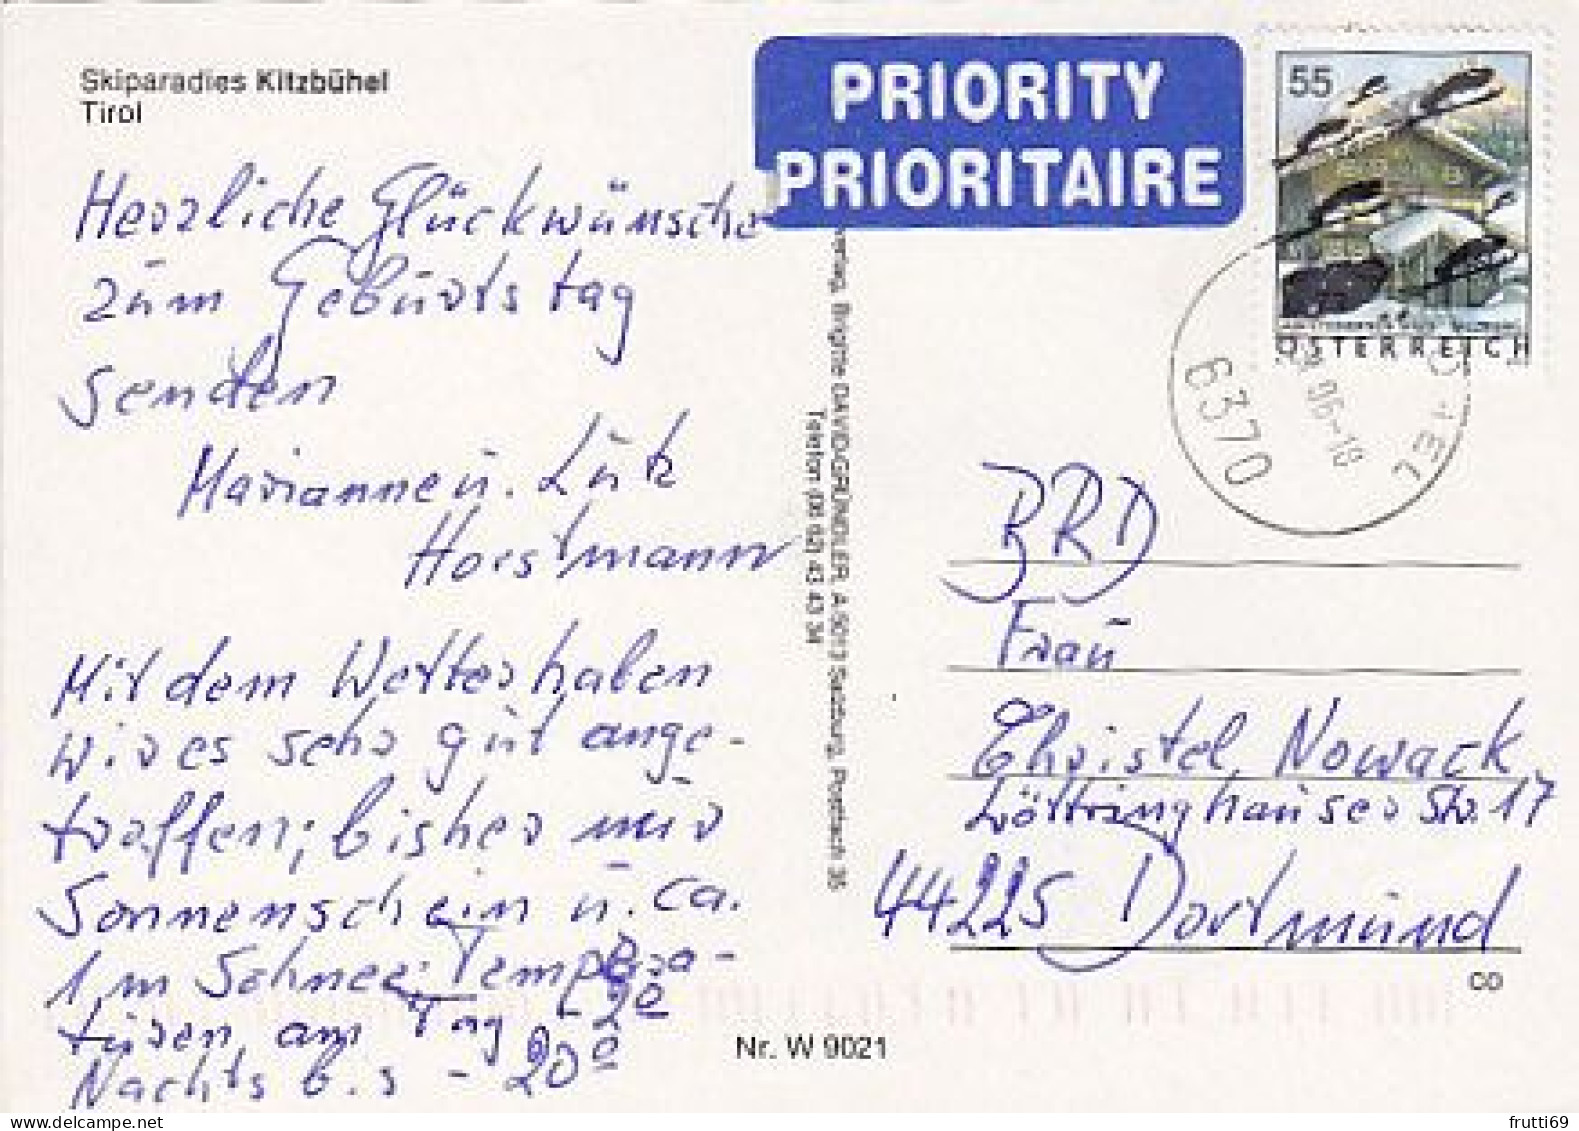 Skiparadies Kitzbühel
Tirol
Herzliche Glückwünsche
zum Geburtstag
senden
Marianne u. Lutz
Horstmann
Mit dem Wetter haben
wir es sehr gut ange-
troffen; bisher nur
Sonnenschein u. ca.
1 m Schnee; Tempera-
turen am Tag -2°
Nachts b.s -20°
PRIORITY
PRIORITAIRE
55
ÖSTERREICH
6370
06-18
Verlag, Brigitte DAVID-GRÜNDLER, A-5013 Salzburg, Postfach 35
Telefon (06 62) 43 43 34
BRD
Frau
Christel Nowack
Löttringhauser Str. 17
44225 Dortmund
CD
Nr. W 9021
frutti69